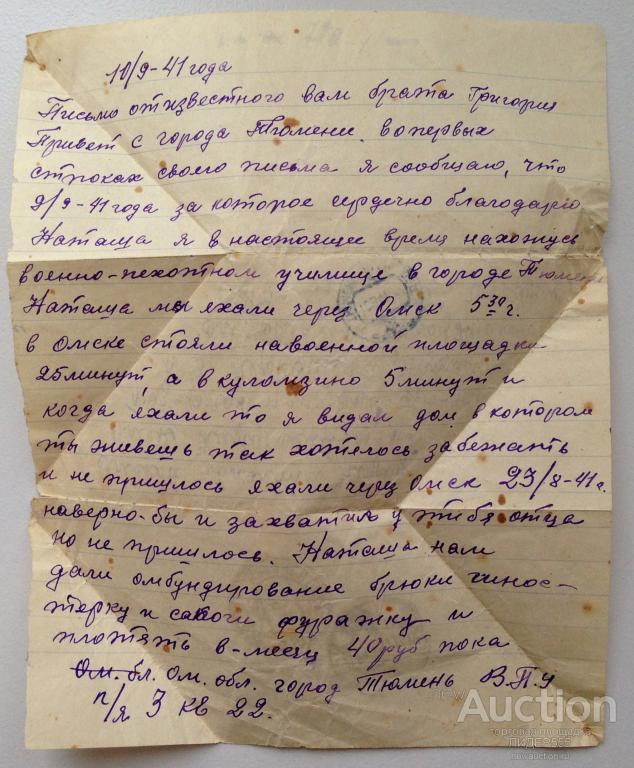 10/9-41 года
Письмо отизвестного вам брата Григория
Привет с города Тюмени. вопервых
строках своего письма я сообщаю, что
9/9-41 года за которое сердечно благодарю
Наташа я в настоящее время нахожусь
военно-пехотном училище в городе Тюмени
Наташа мы яхали через Омск 5 30 г.
в Омске стояли навоенной площадки
25 минут, а в куломзино 5 минут и
когда яхали то я видал дом в котором
ты живешь так хотелось забежать
и не пришлось яхали через Омск 23/8-41 г.
наверно-бы и захватил у тибя отца
но не пришлось. Наташа нам
дали омбундирование брюки гимнос-
терку и сапоги фуражку и
плотять в-месяц 40 руб пока
Ом. бл. Ом. обл. город Тюмень В.П.У
п/я 3 кв 22.
newAuction
торговая площадка
ЛИДЕР555
newauction.ru